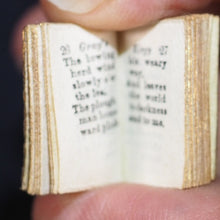 26 Gray's
The lowing
herd wind
slowly o'er
the lea,
The plough
man home
ward plods
Elegy 27
his weary
way,
And leaves
the world
to darkness
and to me.